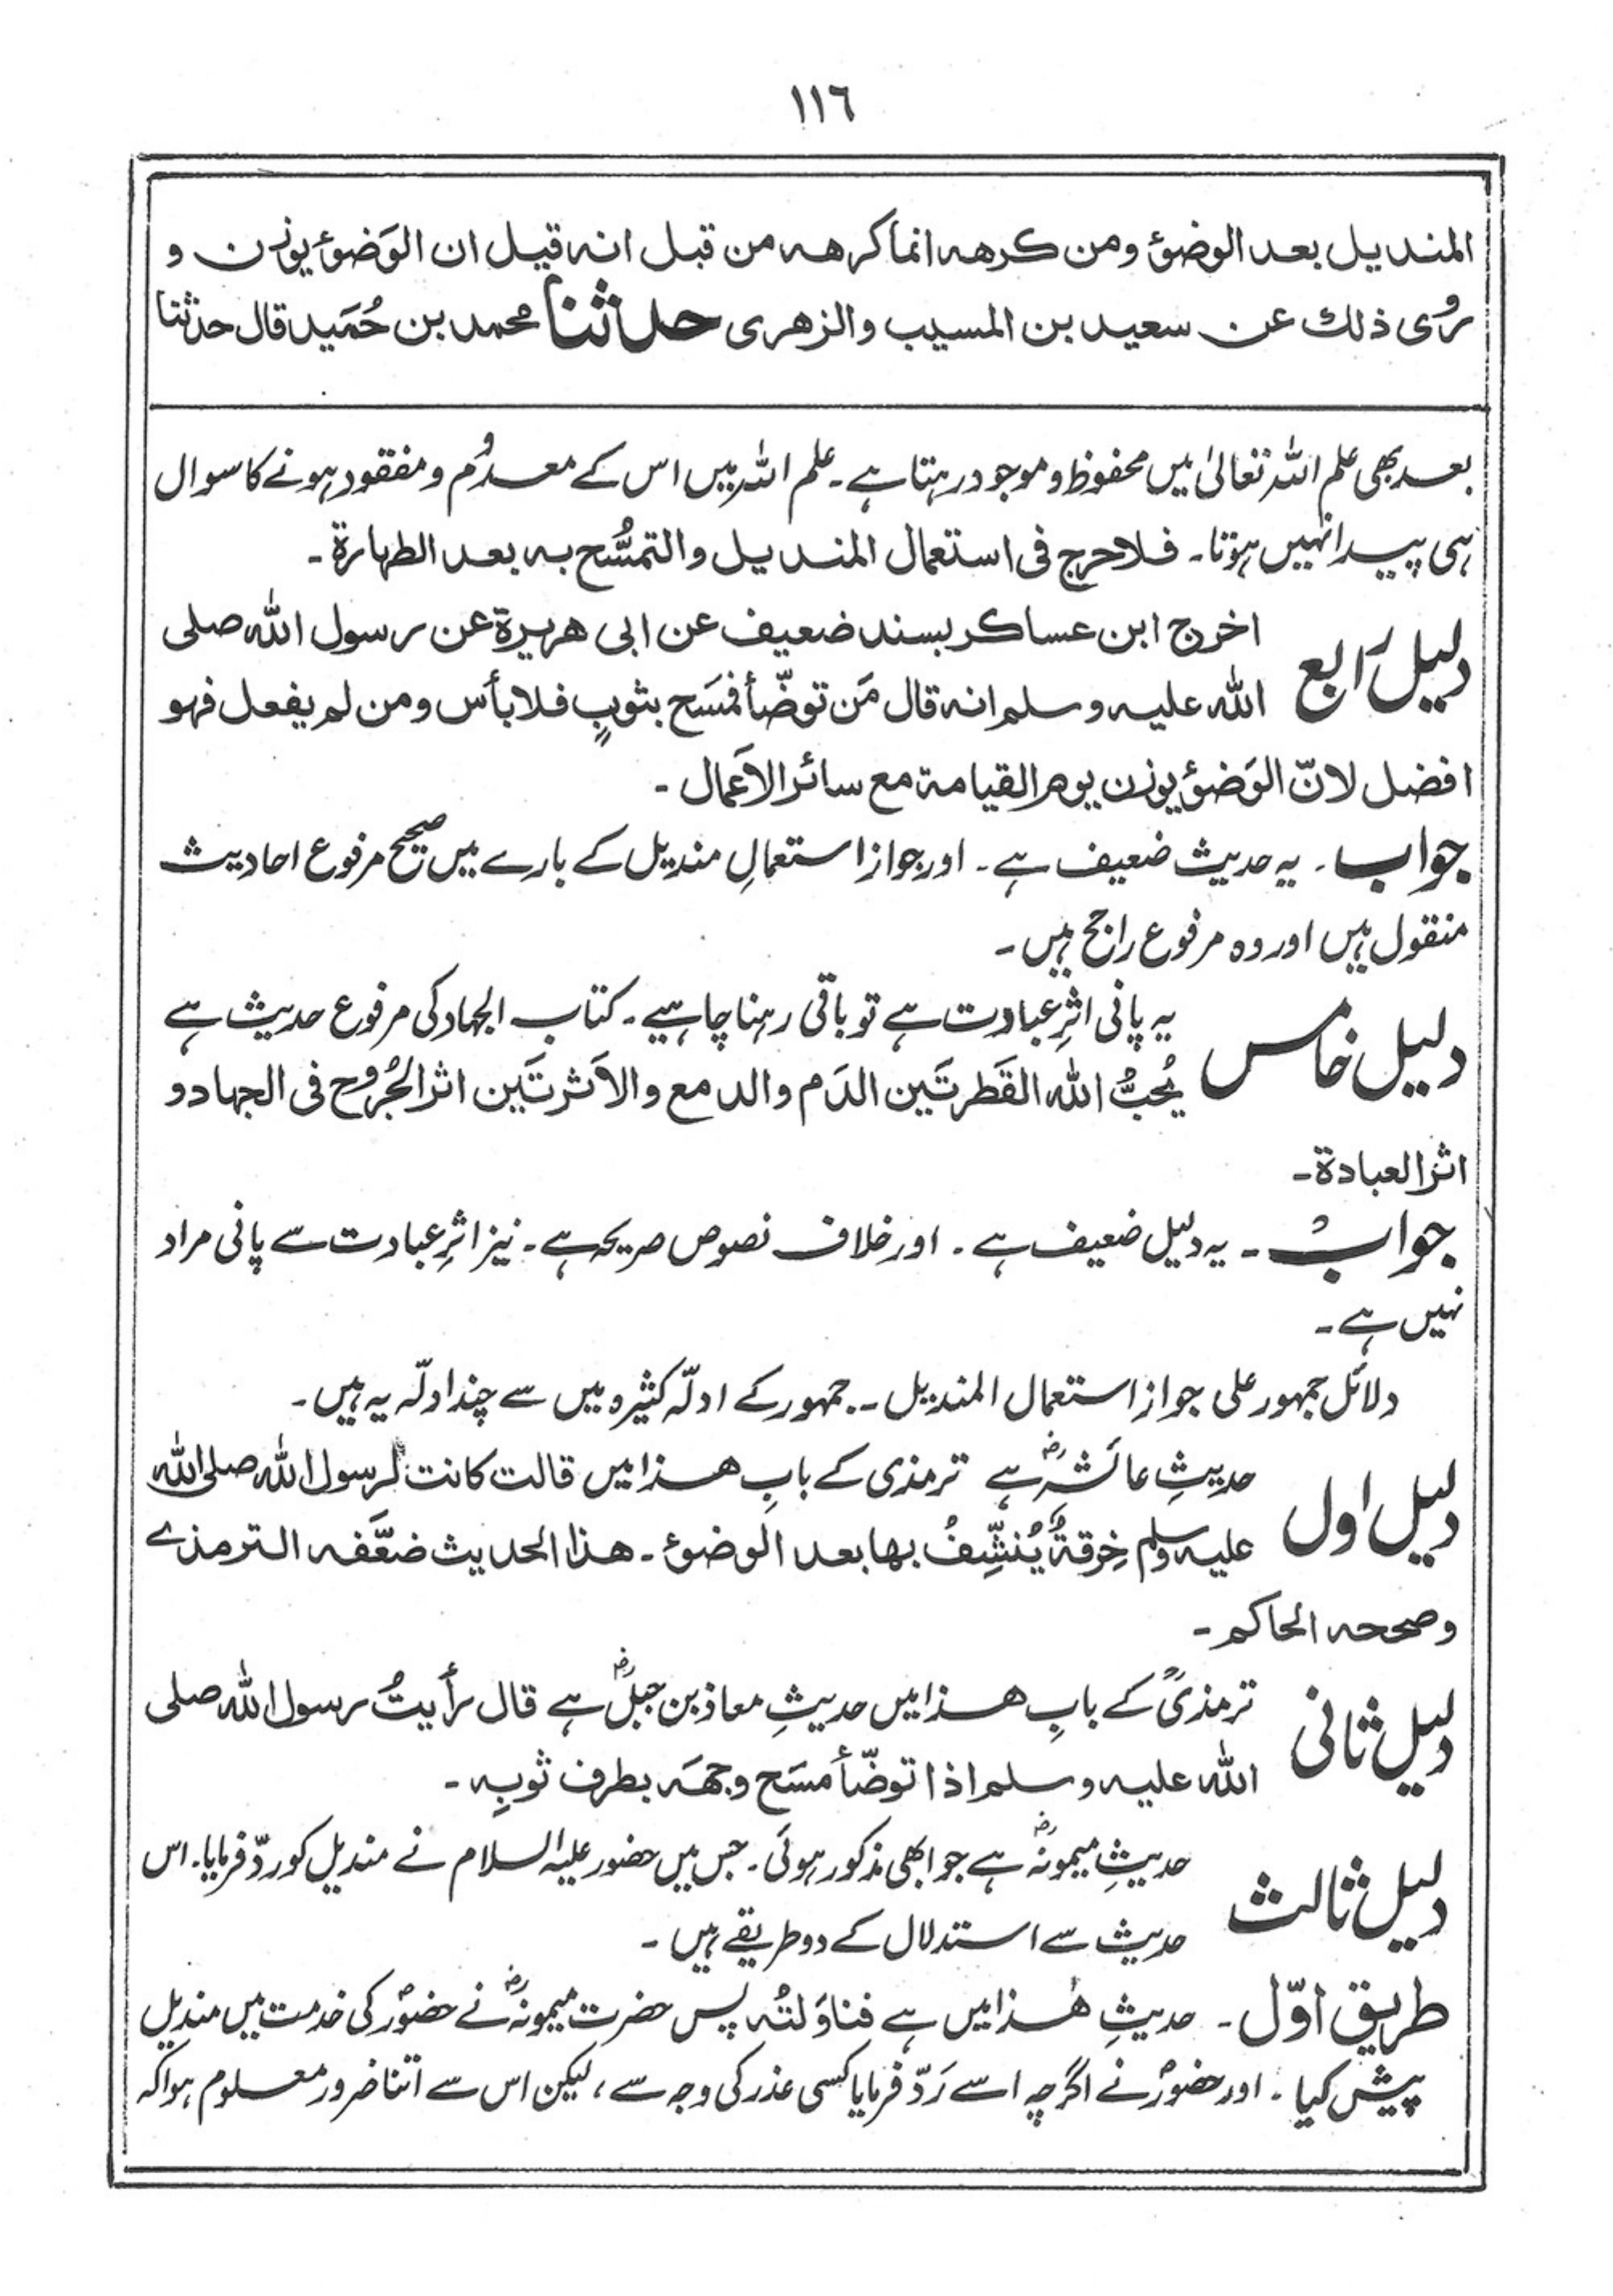 ١١٦
المندیل بعد الوضوٴ ومن کرهه انما کرهه من قبل انه قیل ان الوَضوٴ یوزن و
رُوِی ذلك عن سعید بن المسیب والزهری حدثنا محمد بن حُمَید قال حدثنا
بعد بھی علم اللہ تعالیٰ میں محفوظ و موجود رہتا ہے۔ علم اللہ میں اس کے معدوم و مفقود ہونے کا سوال
ہی پیدا نہیں ہوتا۔ فلا حرج فی استعمال المندیل والتمسُّح بہ بعد الطہارۃ۔
دلیل رابع اخرج ابن عساکر بسند ضعیف عن ابی ھریرۃ عن رسول اللہ صلی
اللہ علیہ وسلم انہ قال مَن توضّأ فمَسَح بثوبٍ فلا بأس ومن لم یفعل فہو
افضل لانّ الوَضوٴ یوزن یوم القیامۃ مع سائر الاَعمال۔
جواب۔ یہ حدیث ضعیف ہے۔ اور جواز استعمالِ مندیل کے بارے میں صحیح مرفوع احادیث
منقول ہیں اور وہ مرفوع راجح ہیں۔
دلیل خامس یہ پانی اثرِ عبادت ہے تو باقی رہنا چاہیے۔ کتاب الجہاد کی مرفوع حدیث ہے
یُحبُّ اللہ القَطرتَین الدَم والدمع والاَثرتَین اثر الجُرُوح فی الجہاد و
اثر العبادۃ۔
جوابٌ۔ یہ دلیل ضعیف ہے۔ اور خلاف نصوص صریحہ ہے۔ نیز اثرِ عبادت سے پانی مراد
نہیں ہے۔
دلائل جمہور علی جواز استعمال المندیل۔ جمہور کے ادلّہ کثیرہ میں سے چند ادلّہ یہ ہیں۔
دلیل اول حدیثِ عائشہؓ ہے ترمذی کے بابِ ھذا میں قالت کانت لرسول اللہ صلی اللہ
علیہ وسلم خِرقۃٌ یُنشِّفُ بہا بعد الوضوٴ۔ ھذا الحدیث ضعَّفہ الترمذے
وصححہ الحاکم۔
دلیل ثانی ترمذیؒ کے بابِ ھذا میں حدیثِ معاذ بن جبلؓ ہے قال رأیتُ رسول اللہ صلی
اللہ علیہ وسلم اذا توضّأ مسَح وجهَہ بطرف ثوبِہ۔
دلیل ثالث حدیثِ میمونہؓ ہے جو ابھی مذکور ہوئی۔ جس میں حضور علیہ السلام نے مندیل کو ردّ فرمایا۔ اس
حدیث سے استدلال کے دو طریقے ہیں۔
طریق اوّل۔ حدیثِ ھٰذا میں ہے فناوَلتُہ پس حضرت میمونہؓ نے حضورؐ کی خدمت میں مندیل
پیش کیا۔ اور حضورؐ نے اگرچہ اسے رَدّ فرمایا کسی عذر کی وجہ سے، لیکن اس سے اتنا ضرور معلوم ہوا کہ